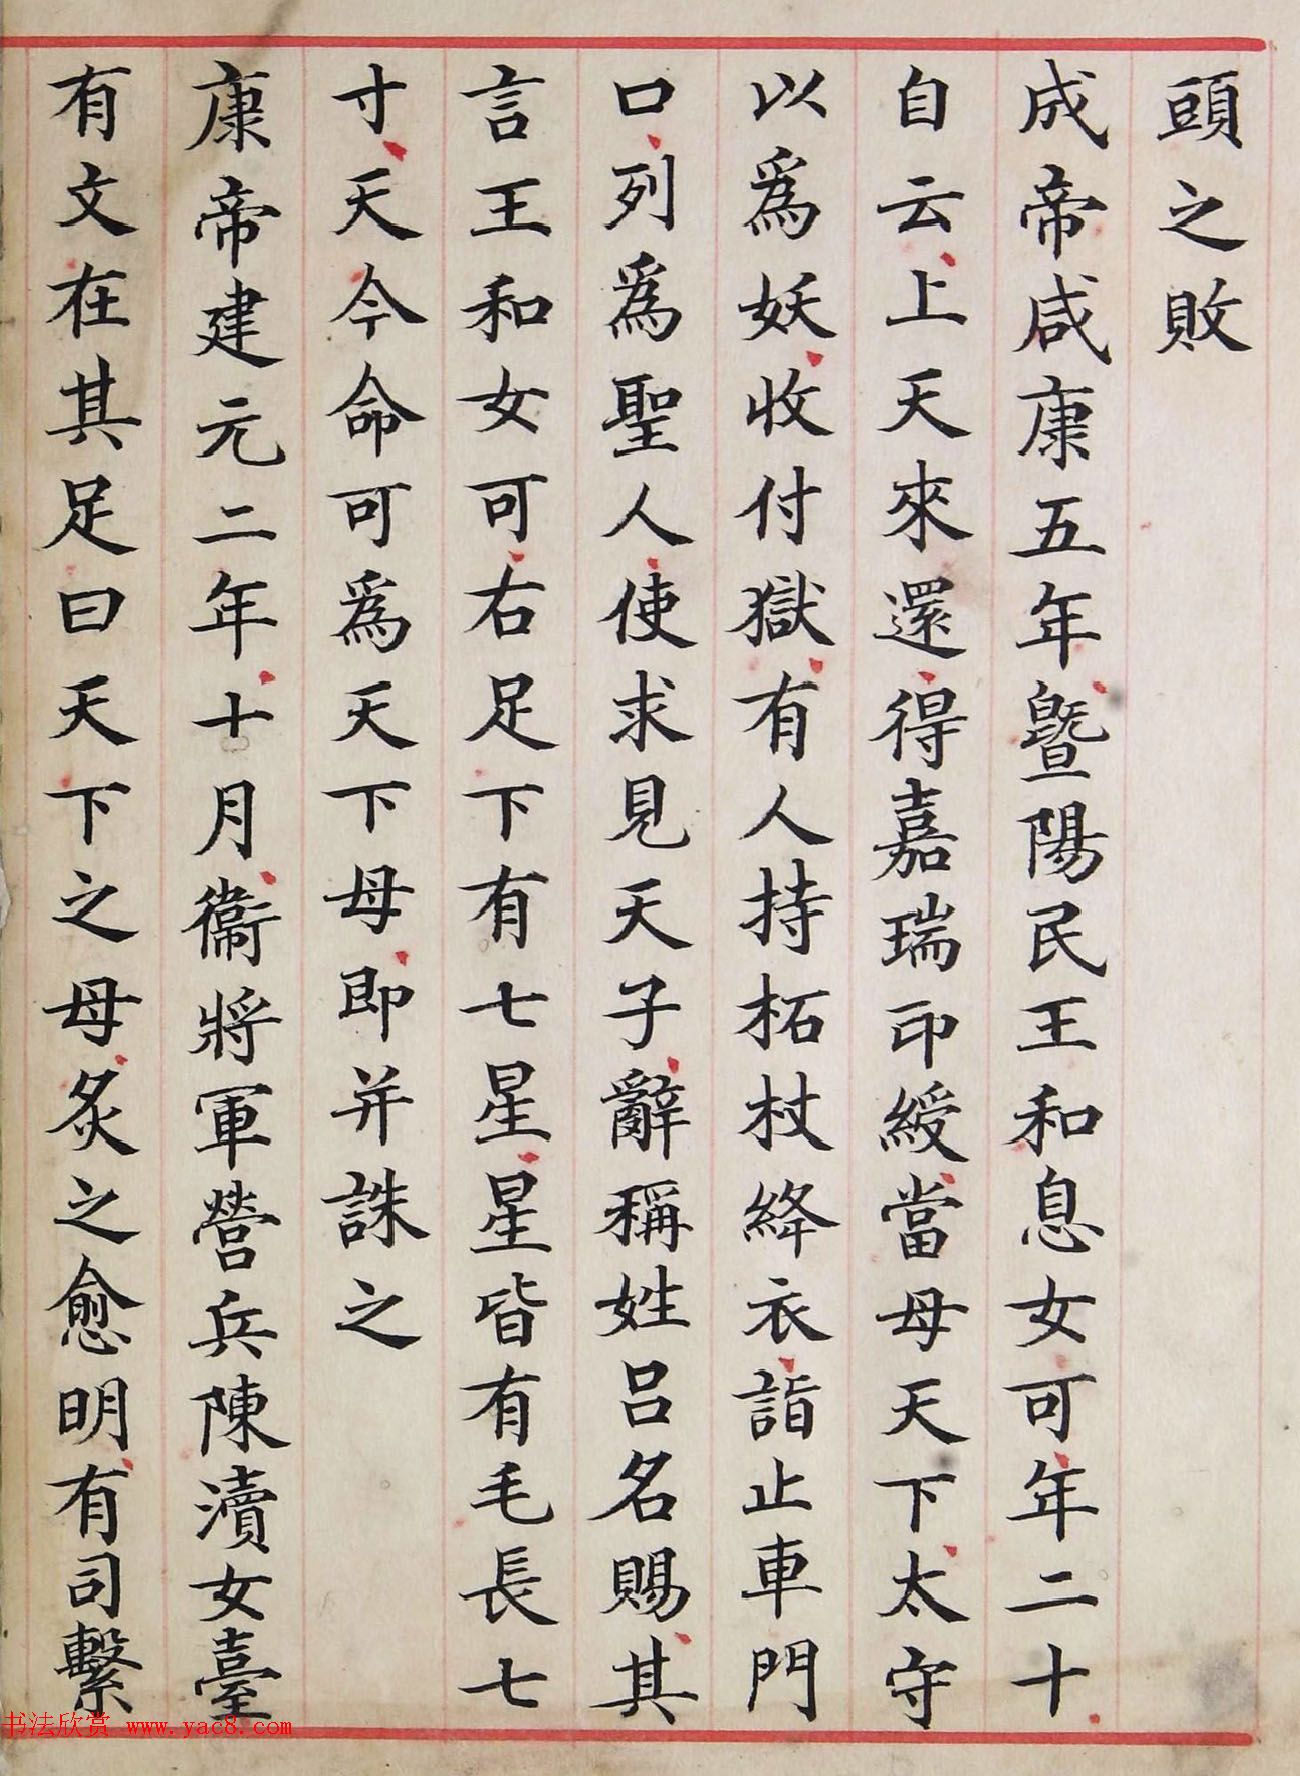 頭之敗
成帝咸康五年暨陽民王和息女可年二十
自云上天來還得嘉瑞印綬當母天下太守
以爲妖收付獄有人持柘杖絳衣詣止車門
口列爲聖人使求見天子辭稱姓吕名賜其
言王和女可右足下有七星星皆有毛長七
寸天今命可爲天下母即并誅之
康帝建元二年十月衞將軍營兵陳瀆女臺
有文在其足曰天下之母炙之愈明有司繫
书法欣赏 www.yac8.com